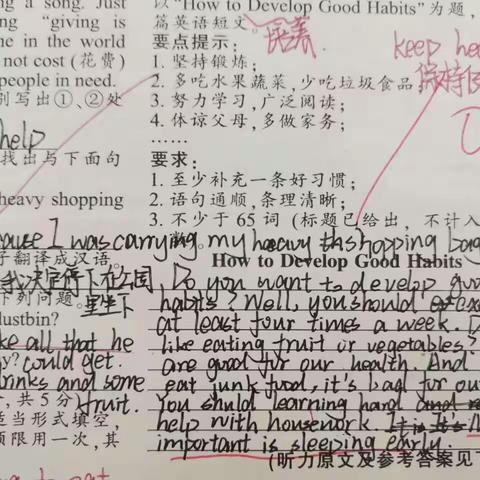 g a song. Just
ng "giving is
ne in the world
not cost (花费)
people in need.
别写出①、②处
help
找出与下面句
heavy shopping
cause I was carrying my heavy shopping bag
子翻译成汉语。
我决定停下在公园
里坐下
下列问题。
dustbin?
ke all that he
y? could get.
drinks and some
共5分 fruit.
适当形式填空,
项限用一次,其
以“How to Develop Good Habits”为题,
篇英语短文。
培养
要点提示:
keep hea
保持
1. 坚持锻炼;
2. 多吃水果蔬菜,少吃垃圾食品;
3. 努力学习,广泛阅读;
4. 体谅父母,多做家务;
……
要求:
1. 至少补充一条好习惯;
2. 语句通顺,条理清晰;
3. 不少于 65 词 (标题已给出, 不计入
How to Develop Good Habits
Do you want to develop good
habits? Well, you should exe
at least four times a week. D
like eating fruit or vegetables?
are good for our health. And
eat junk food, it's bad for our
You should learning hard and
help with housework.
important is sleeping early.
(听力原文及参考答案见下